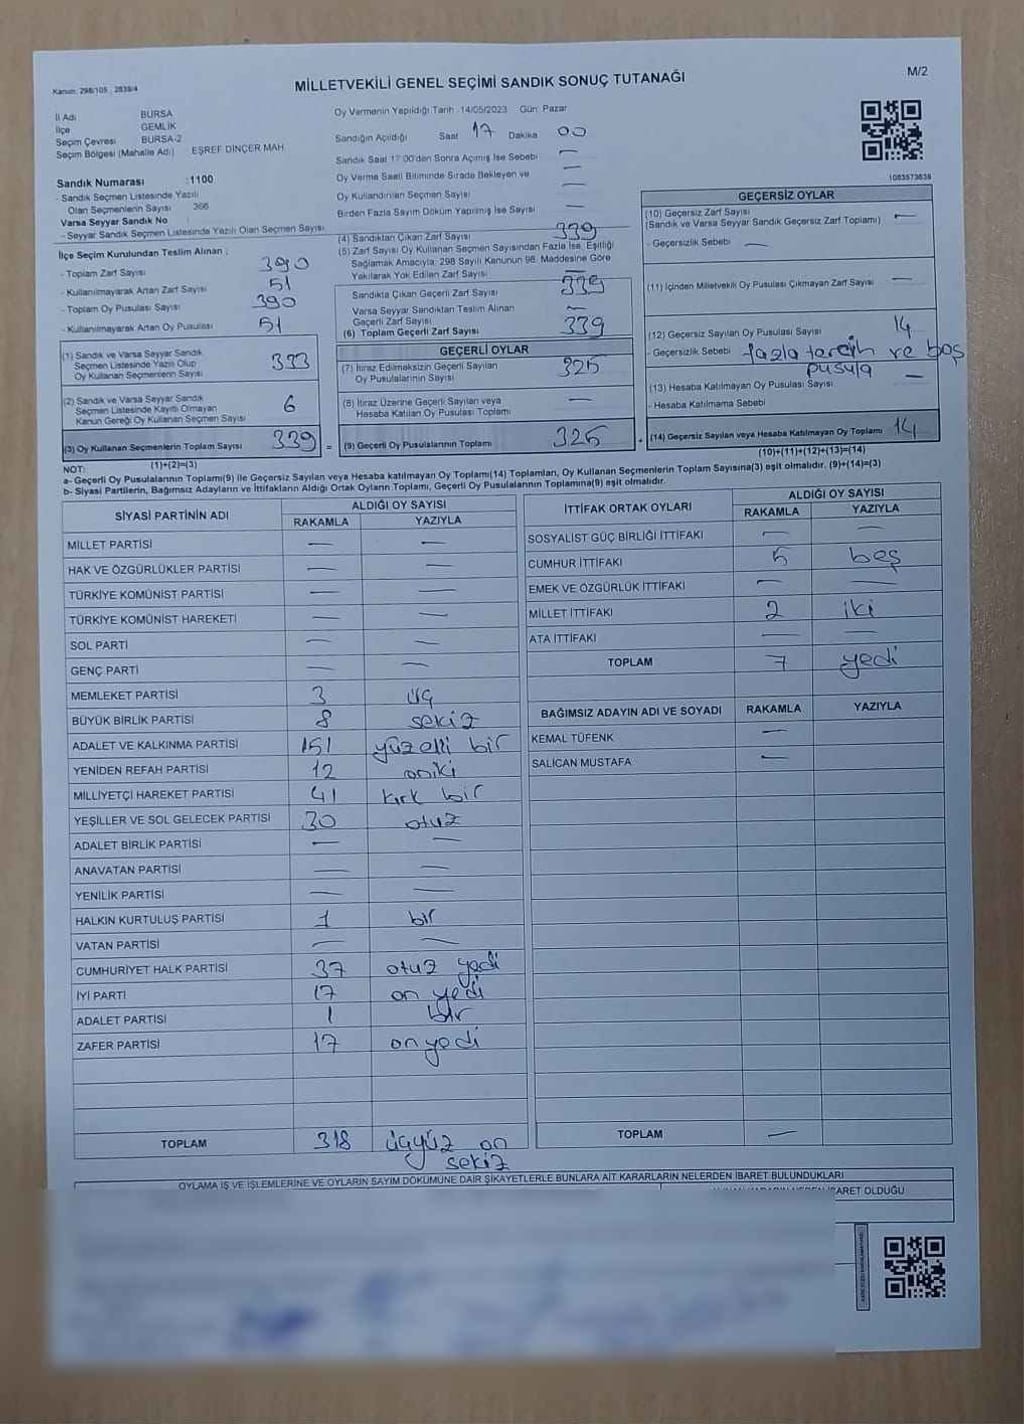 Kanun: 298/105 , 2839/4
MİLLETVEKİLİ GENEL SEÇİMİ SANDIK SONUÇ TUTANAĞI
M/2
İl Adı BURSA
İlçe GEMLİK
Seçim Çevresi BURSA-2
Seçim Bölgesi (Mahalle Adı) EŞREF DİNÇER MAH
Sandık Numarası :1100
- Sandık Seçmen Listesinde Yazılı
Olan Seçmenlerin Sayısı 366
Varsa Seyyar Sandık No
- Seyyar Sandık Seçmen Listesinde Yazılı Olan Seçmen Sayısı
İlçe Seçim Kurulundan Teslim Alınan :
- Toplam Zarf Sayısı 390
- Kullanılmayarak Artan Zarf Sayısı 51
- Toplam Oy Pusulası Sayısı 390
- Kullanılmayarak Artan Oy Pusulası 51
(1) Sandık ve Varsa Seyyar Sandık
Seçmen Listesinde Yazılı Olup
Oy Kullanan Seçmenlerin Sayısı 333
(2) Sandık ve Varsa Seyyar Sandık
Seçmen Listesinde Kayıtlı Olmayan
Kanun Gereği Oy Kullanan Seçmen Sayısı 6
(3) Oy Kullanan Seçmenlerin Toplam Sayısı 339 =
(1)+(2)=(3)
Oy Vermenin Yapıldığı Tarih : 14/05/2023 Gün: Pazar
Sandığın Açıldığı Saat 17 Dakika 00
Sandık Saat 17:00'den Sonra Açılmış İse Sebebi —
Oy Verme Saati Bitiminde Sırada Bekleyen ve —
Oy Kullandırılan Seçmen Sayısı —
Birden Fazla Sayım Döküm Yapılmış İse Sayısı —
(4) Sandıktan Çıkan Zarf Sayısı 339
(5) Zarf Sayısı Oy Kullanan Seçmen Sayısından Fazla İse, Eşitliği
Sağlamak Amacıyla; 298 Sayılı Kanunun 98. Maddesine Göre
Yakılarak Yok Edilen Zarf Sayısı —
Sandıkta Çıkan Geçerli Zarf Sayısı 339
Varsa Seyyar Sandıktan Teslim Alınan
Geçerli Zarf Sayısı —
(6) Toplam Geçerli Zarf Sayısı 339
GEÇERLİ OYLAR
(7) İtiraz Edilmeksizin Geçerli Sayılan
Oy Pusulalarının Sayısı 325
(8) İtiraz Üzerine Geçerli Sayılan veya
Hesaba Katılan Oy Pusulası Toplamı —
(9) Geçerli Oy Pusulalarının Toplamı 325 +
1083573638
GEÇERSİZ OYLAR
(10) Geçersiz Zarf Sayısı
(Sandık ve Varsa Seyyar Sandık Geçersiz Zarf Toplamı) —
- Geçersizlik Sebebi —
(11) İçinden Milletvekili Oy Pusulası Çıkmayan Zarf Sayısı —
(12) Geçersiz Sayılan Oy Pusulası Sayısı 14
- Geçersizlik Sebebi fazla tercih ve boş
pusula
(13) Hesaba Katılmayan Oy Pusulası Sayısı —
- Hesaba Katılmama Sebebi
(14) Geçersiz Sayılan veya Hesaba Katılmayan Oy Toplamı 14
(10)+(11)+(12)+(13)=(14)
NOT:
a- Geçerli Oy Pusulalarının Toplamı(9) ile Geçersiz Sayılan veya Hesaba katılmayan Oy Toplamı(14) Toplamları, Oy Kullanan Seçmenlerin Toplam Sayısına(3) eşit olmalıdır. (9)+(14)=(3)
b- Siyasi Partilerin, Bağımsız Adayların ve İttifakların Aldığı Ortak Oyların Toplamı, Geçerli Oy Pusulalarının Toplamına(9) eşit olmalıdır.
SİYASİ PARTİNİN ADI ALDIĞI OY SAYISI
RAKAMLA YAZIYLA
MİLLET PARTİSİ — —
HAK VE ÖZGÜRLÜKLER PARTİSİ — —
TÜRKİYE KOMÜNİST PARTİSİ — —
TÜRKİYE KOMÜNİST HAREKETİ — —
SOL PARTİ — —
GENÇ PARTİ — —
MEMLEKET PARTİSİ 3 üç
BÜYÜK BİRLİK PARTİSİ 8 sekiz
ADALET VE KALKINMA PARTİSİ 151 yüzelli bir
YENİDEN REFAH PARTİSİ 12 oniki
MİLLİYETÇİ HAREKET PARTİSİ 41 kırk bir
YEŞİLLER VE SOL GELECEK PARTİSİ 30 otuz
ADALET BİRLİK PARTİSİ — —
ANAVATAN PARTİSİ — —
YENİLİK PARTİSİ — —
HALKIN KURTULUŞ PARTİSİ 1 bir
VATAN PARTİSİ — —
CUMHURİYET HALK PARTİSİ 37 otuz yedi
İYİ PARTİ 17 on yedi
ADALET PARTİSİ 1 bir
ZAFER PARTİSİ 17 onyedi
TOPLAM 318 üçyüz on
sekiz
İTTİFAK ORTAK OYLARI ALDIĞI OY SAYISI
RAKAMLA YAZIYLA
SOSYALİST GÜÇ BİRLİĞİ İTTİFAKI — —
CUMHUR İTTİFAKI 5 beş
EMEK VE ÖZGÜRLÜK İTTİFAKI — —
MİLLET İTTİFAKI 2 iki
ATA İTTİFAKI — —
TOPLAM 7 yedi
BAĞIMSIZ ADAYIN ADI VE SOYADI RAKAMLA YAZIYLA
KEMAL TÜFENK —
SALİCAN MUSTAFA —
TOPLAM —
OYLAMA İŞ VE İŞLEMLERİNE VE OYLARIN SAYIM DÖKÜMÜNE DAİR ŞİKAYETLERLE BUNLARA AİT KARARLARIN NELERDEN İBARET BULUNDUKLARI
İBARET OLDUĞU